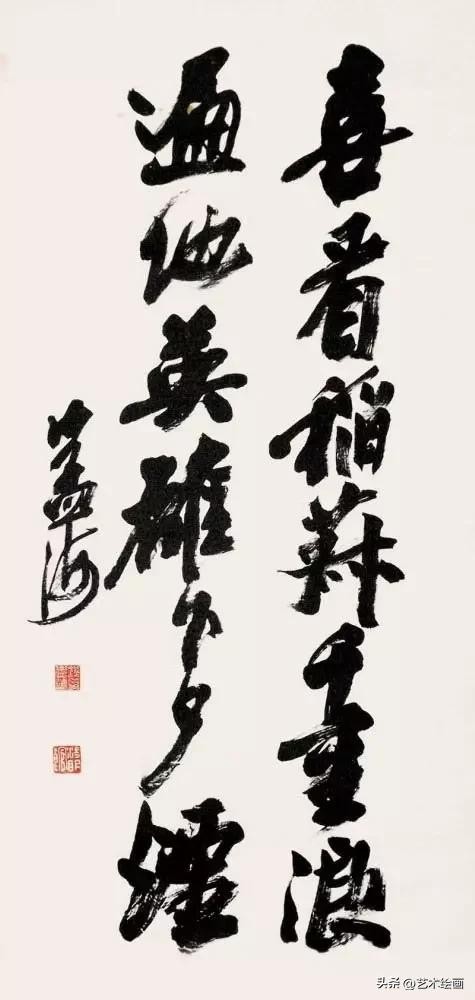 喜看稻菽千重浪
遍地英雄下夕煙
沙孟海
头条 @艺术绘画